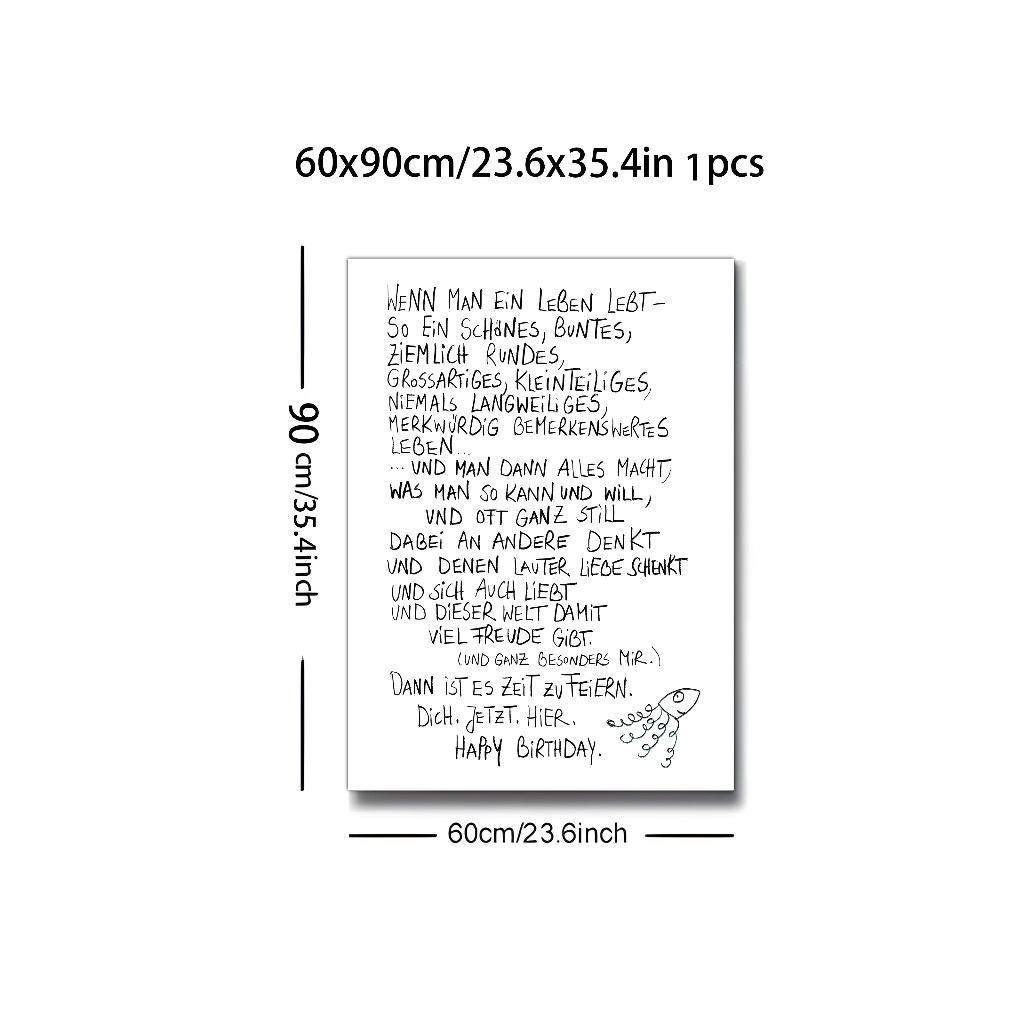 60x90cm/23.6x35.4in 1pcs
90 cm/35.4inch
WENN MAN EIN LEBEN LEBT–
SO EIN SCHÖNES, BUNTES,
ZIEMLICH RUNDES,
GROSSARTIGES, KLEINTEILIGES,
NIEMALS LANGWEILIGES,
MERKWÜRDIG BEMERKENSWERTES
LEBEN...
... UND MAN DANN ALLES MACHT,
WAS MAN SO KANN UND WILL,
UND OFT GANZ STILL
DABEI AN ANDERE DENKT
UND DENEN LAUTER LIEBE SCHENKT
UND SICH AUCH LIEBT
UND DIESER WELT DAMIT
VIEL FREUDE GIBT.
(UND GANZ BESONDERS MIR.)
DANN IST ES ZEIT ZU FEIERN.
DICH. JETZT. HIER.
HAPPY BIRTHDAY.
60cm/23.6inch